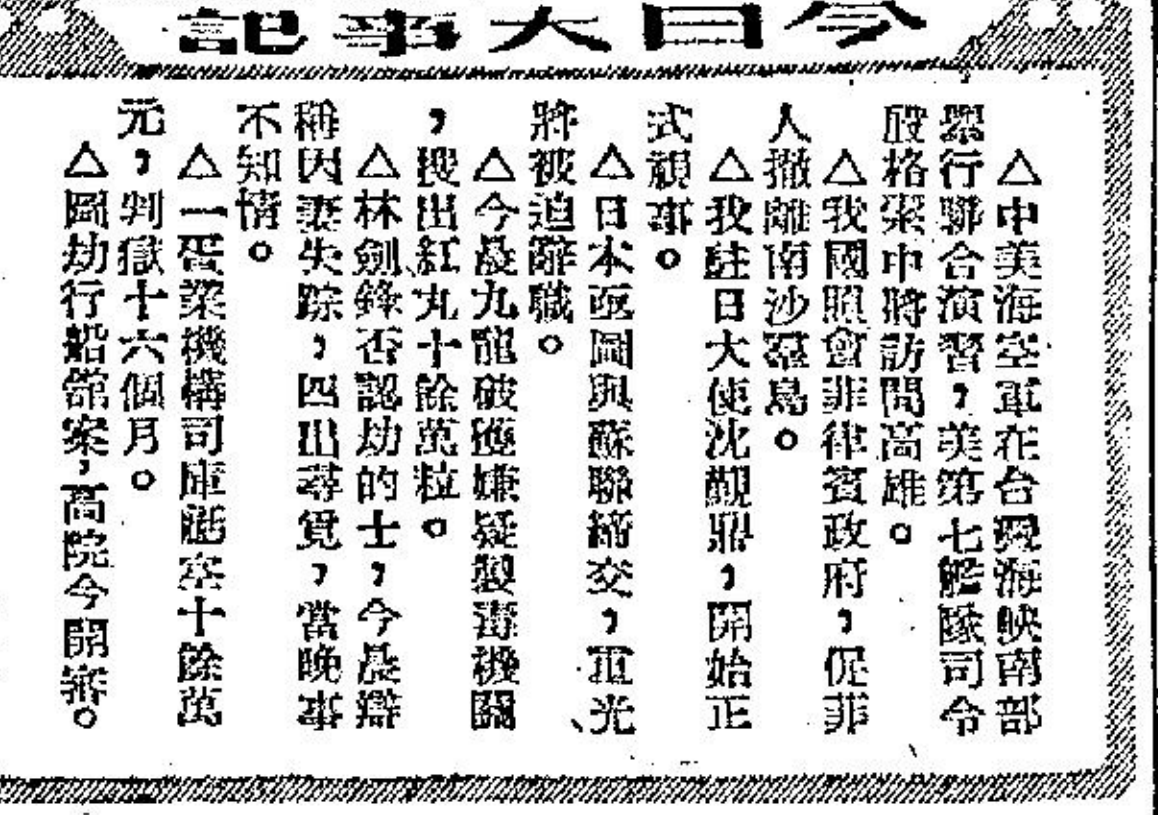 今日大事記
△中美海空軍在台灣海峽南部
舉行聯合演習，美第七艦隊司令
殷格索中將訪問高雄。
△我國照會菲律賓政府，促菲
人撤離南沙羣島。
△我駐日大使沈覲鼎，開始正
式視事。
△日本亟圖與蘇聯締交，重光
將被迫辭職。
△今晨九龍破獲嫌疑製毒機關
，搜出紅丸十餘萬粒。
△林劍鋒否認劫的士，今晨辯
稱因妻失踪，四出尋覓，當晚事
不知情。
△一蛋業機構司庫虧空十餘萬
元，判獄十六個月。
△圖劫行船館案，高院今開審。